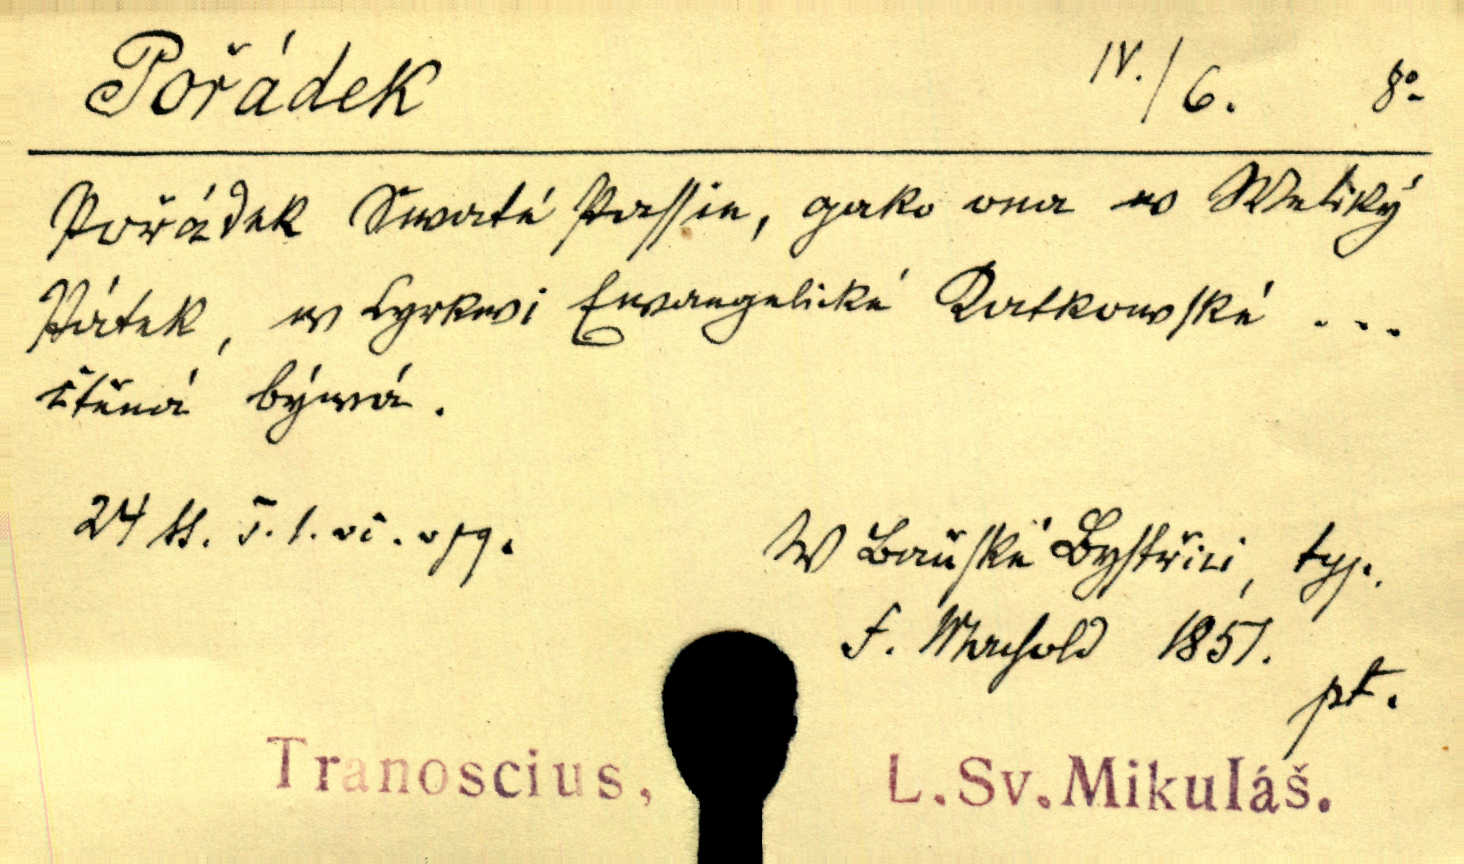 Pořádek IV./6. 8°
Pořádek Swaté Passie, gako ona w Weliký
Pátek, w Cyrkwi Ewangelické Ratkowské ...
čtěná býwá.
24 ss.
W Baňské Bystřici, typ.
F. Machold 1857.
pt.
Tranoscius, L.Sv.Mikuláš.